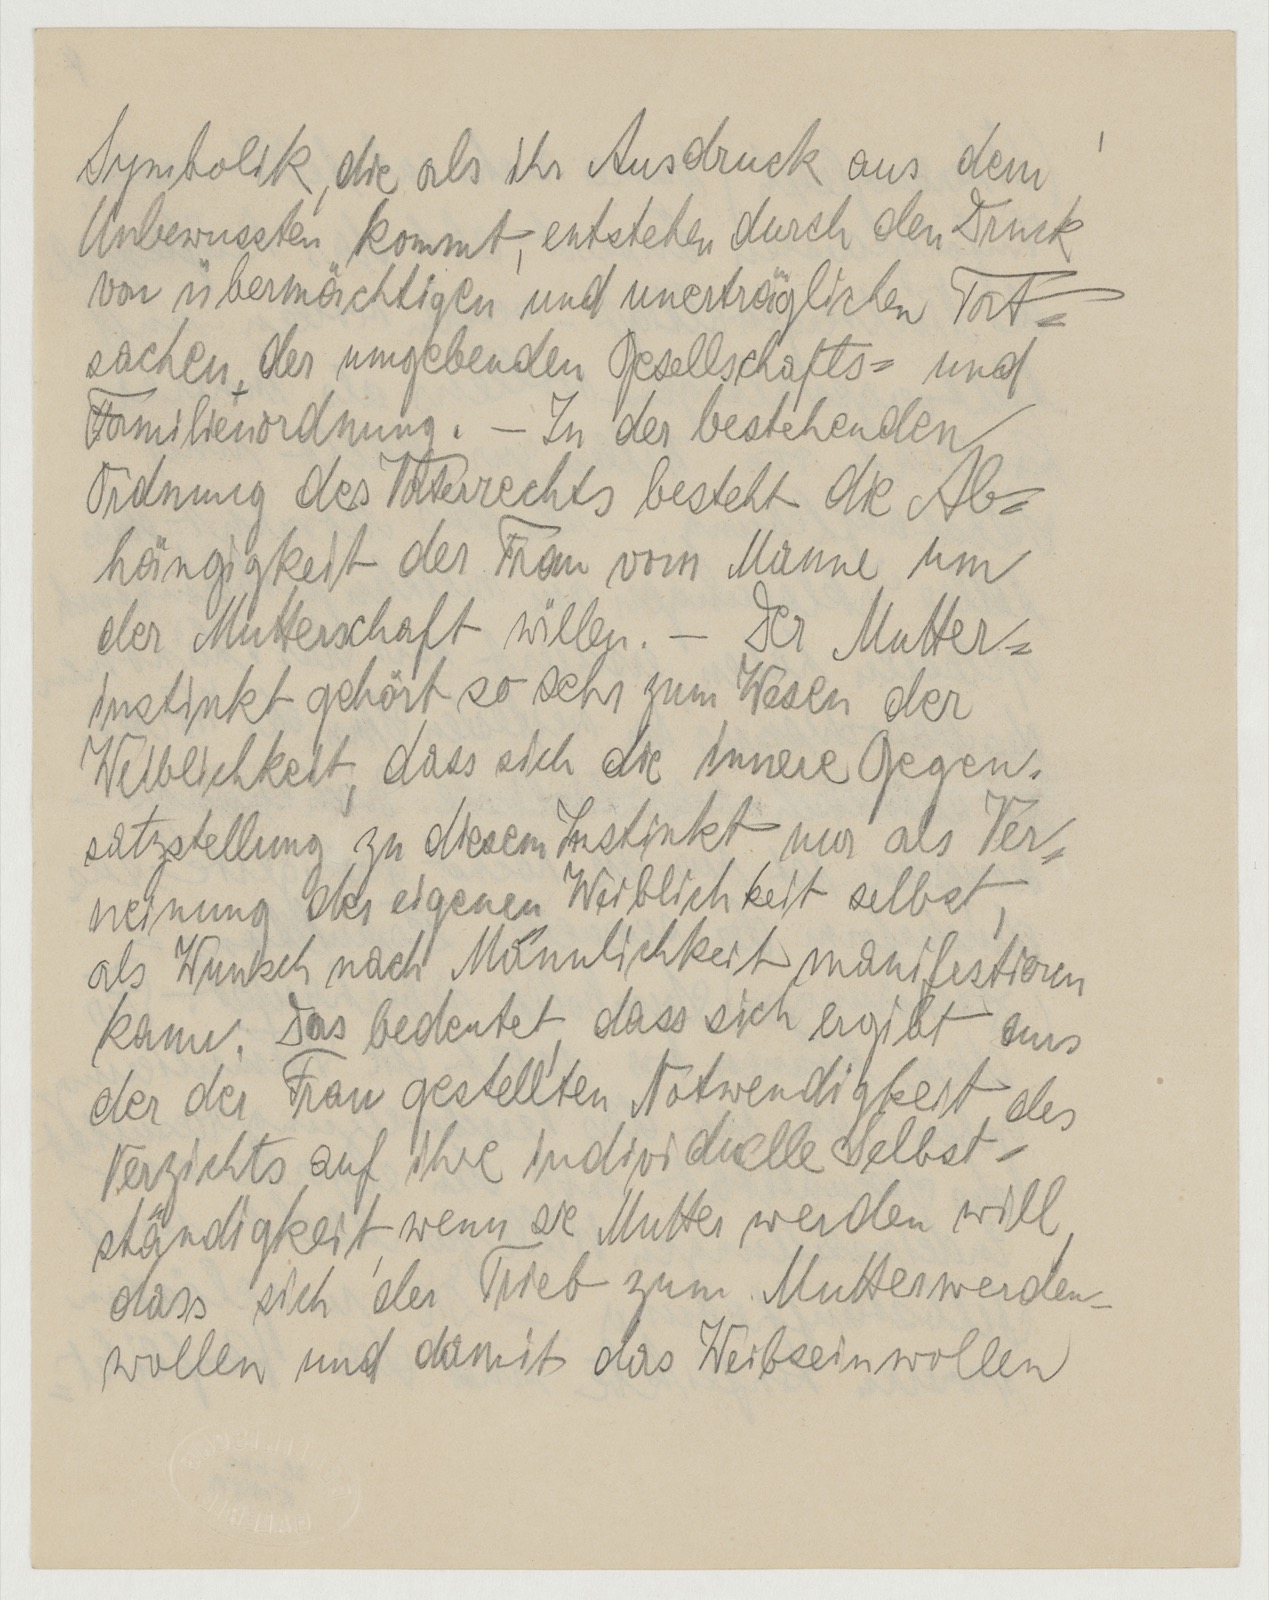 Symbolik, die als ihr Ausdruck aus dem
Unbewussten kommt, entstehen durch den Druck
von übermächtigen und unerträglichen Tat=
sachen der umgebenden Gesellschafts= und
Familienordnung. — In der bestehenden
Ordnung des Vaterrechts besteht die Ab=
hängigkeit der Frau vom Manne um
der Mutterschaft willen. — Der Mutter=
instinkt gehört so sehr zum Wesen der
Weiblichkeit, dass sich die innere Gegen-
satzstellung zu diesem Instinkt nur als Ver=
neinung der eigenen Weiblichkeit selbst,
als Wunsch nach Männlichkeit manifestieren
kann. Das bedeutet, dass sich ergibt aus
der der Frau gestellten Notwendigkeit des
Verzichts auf ihre individuelle Selbst-
ständigkeit, wenn sie Mutter werden will,
dass sich der Trieb zum Mutterwerden-
wollen und damit das Weibseinwollen